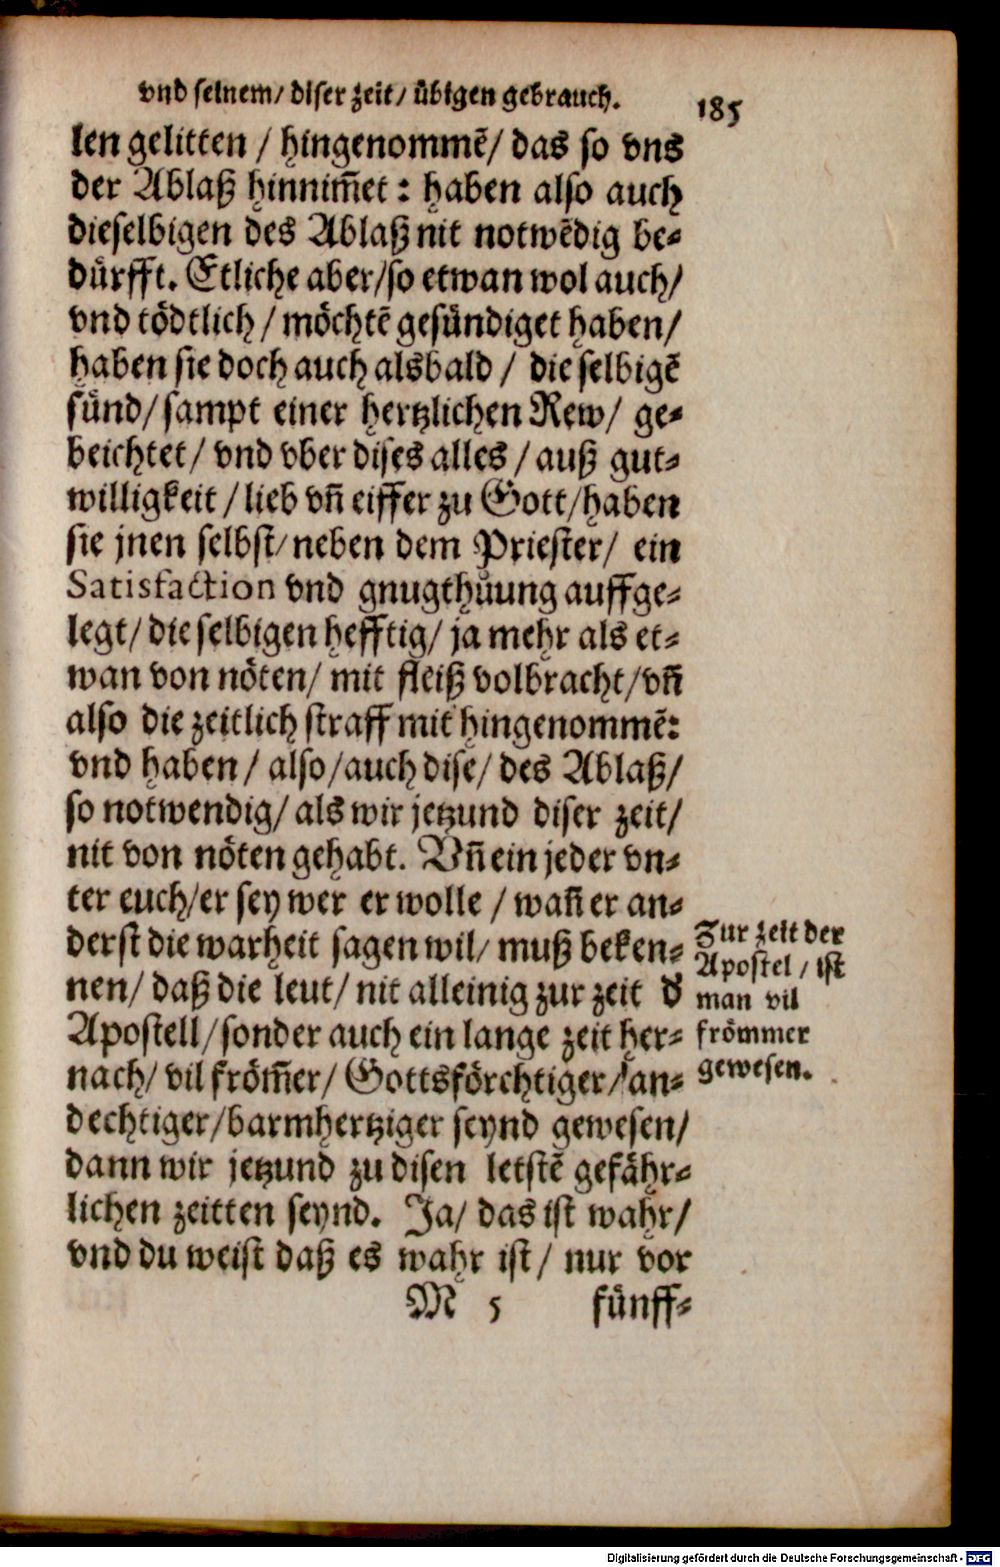 vnd seinem/ diser zeit/ übigen gebrauch. 185
len gelitten / hingenommẽ/ das so vns
der Ablaß hinnim̃et : haben also auch
dieselbigen des Ablaß nit notwẽdig be⸗
dürfft. Etliche aber/so etwan wol auch/
vnd tödtlich / möchtẽ gesündiget haben/
haben sie doch auch alsbald / die selbigẽ
sünd/ sampt einer hertzlichen Rew/ ge⸗
beichtet/ vnd vber dises alles / auß gut⸗
willigkeit / lieb vñ eiffer zu Gott/haben
sie jnen selbst/ neben dem Priester/ ein
Satisfaction vnd gnugthůung auffge⸗
legt/ die selbigen hefftig/ ja mehr als et⸗
wan von nöten/ mit fleiß volbracht/ vñ
also die zeitlich straff mit hingenommẽ:
vnd haben/ also/auch dise/ des Ablaß/
so notwendig/ als wir jetzund diser zeit/
nit von nöten gehabt. Vñ ein jeder vn⸗
ter euch/er sey wer er wolle / wañ er an⸗
derst die warheit sagen wil/ muß beken⸗
nen/ daß die leut/ nit alleinig zur zeit d̕
Apostell/sonder auch ein lange zeit her⸗
nach/ vil fröm̃er/ Gottsförchtiger/ an⸗
dechtiger/barmhertziger seynd gewesen/
dann wir jetzund zu disen letstẽ gefähr⸗
lichen zeitten seynd. Ja/ das ist wahr/
vnd du weist daß es wahr ist/ nur vor
M 5 fünff⸗
Zur zeit der
Apostel / ist
man vil
frömmer
gewesen.
Digitalisierung gefördert durch die Deutsche Forschungsgemeinschaft - DFG